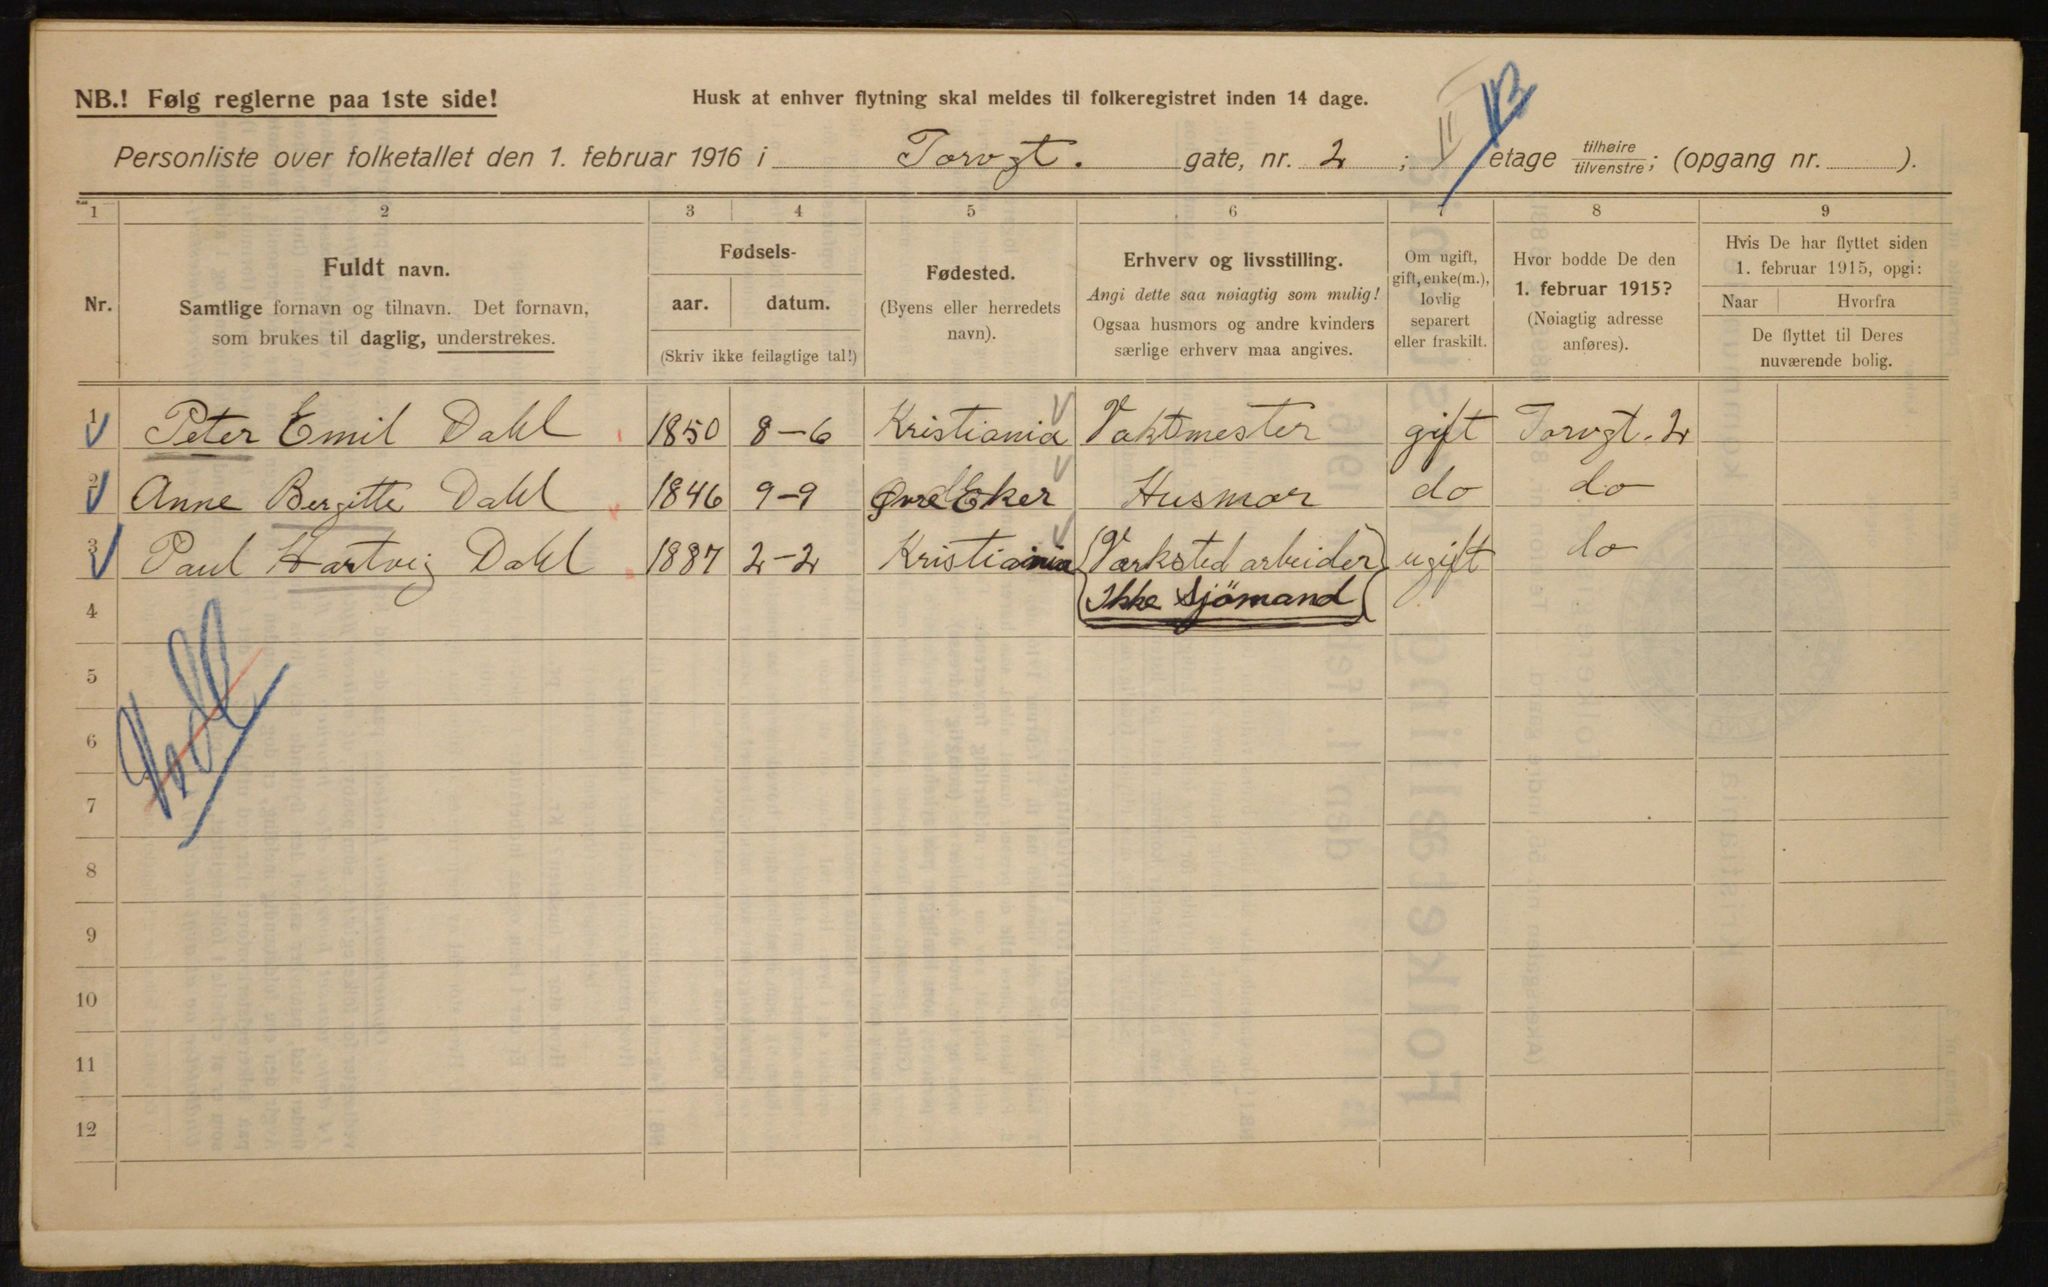 NB.! Følg reglerne paa 1ste side!
Husk at enhver flytning skal meldes til folkeregistret inden 14 dage.
Personliste over folketallet den 1. februar 1916 i Torvgt. gate, nr. 2; II etage tilhøire/tilvenstre; (opgang nr. ).
1 2 3 4 5 6 7 8 9
Nr.
Fuldt navn.
Samtlige fornavn og tilnavn. Det fornavn,
som brukes til daglig, understrekes.
Fødsels-
aar. datum.
(Skriv ikke feilagtige tal!)
Fødested.
(Byens eller herredets
navn).
Erhverv og livsstilling.
Angi dette saa nøiagtig som mulig!
Ogsaa husmors og andre kvinders
særlige erhverv maa angives.
Om ugift,
gift, enke(m.),
lovlig
separert
eller fraskilt.
Hvor bodde De den
1. februar 1915?
(Nøiagtig adresse
anføres).
Hvis De har flyttet siden
1. februar 1915, opgi:
Naar Hvorfra
De flyttet til Deres
nuværende bolig.
1 Peter Emil Dahl 1850 8-6 Kristiania Vaktmester gift Torvgt. 2
2 Anne Bergitte Dahl 1846 9-9 Øvre Eker Husmor do do
3 Paul Hartvig Dahl 1887 2-2 Kristiania (Værksted arbeider) ugift do
4 (Ikke Sjömand)
5
6
7
8
9
10
11
12